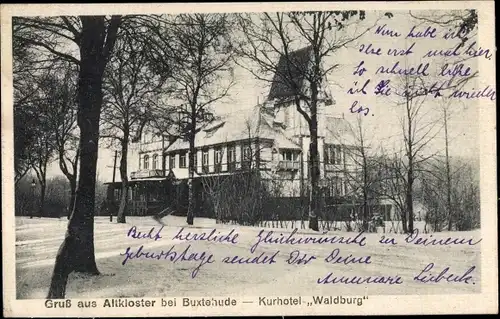 Nun habe ich
Else erst mal hier
so schnell lasse
ich sie nicht wieder
los.
Recht herzliche Glückwünsche zu Deinem
Geburtstag sendet Dir Deine
Annemarie Liebech.
Gruß aus Altkloster bei Buxtehude — Kurhotel „Waldburg“